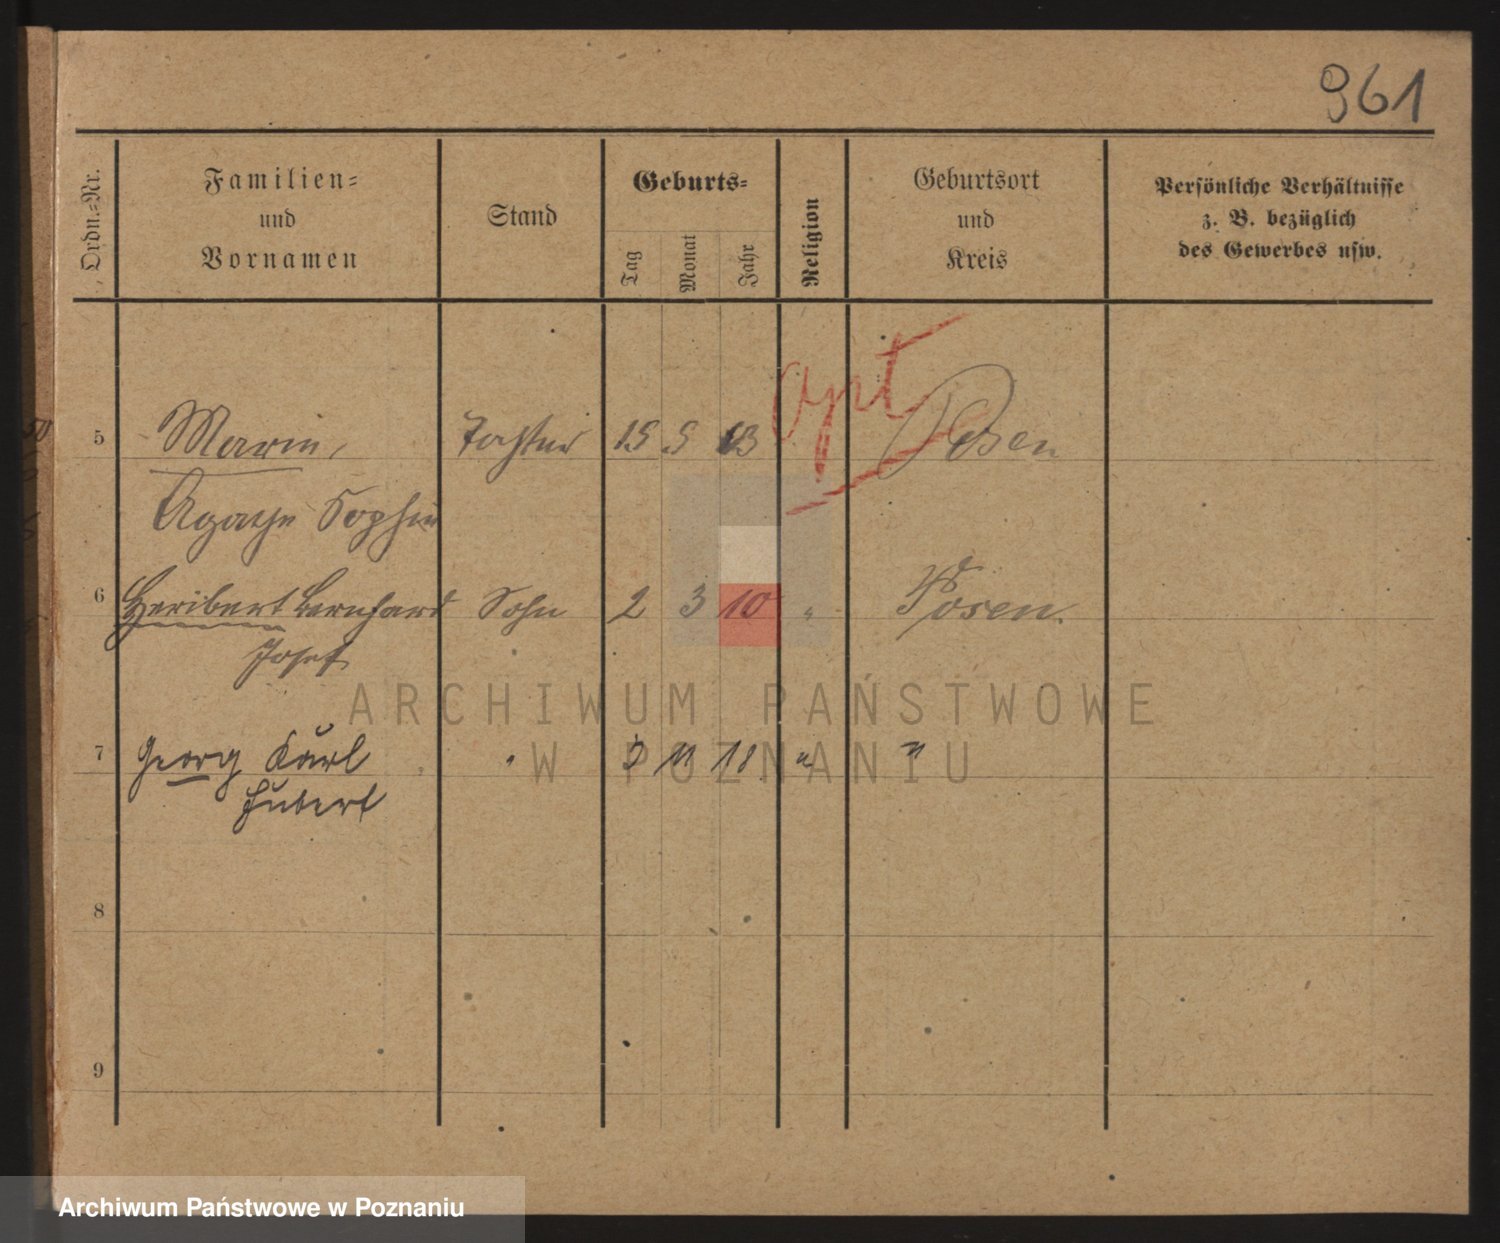 961
Ordn.=Nr.
Familien=
und
Vornamen
Stand
Geburts=
Tag
Monat
Jahr
Religion
Geburtsort
und
Kreis
Persönliche Verhältnisse
z. B. bezüglich
des Gewerbes usw.
5 Marie, Tochter 15 5 13 Posen
Agathe Sophie
6 Heribert Bernhard Sohn 2 3 10 " Posen.
Josef
7 Georg Karl " 11 18 " "
Hubert
8
9
ARCHIWUM PAŃSTWOWE
W POZNANIU
Archiwum Państwowe w Poznaniu